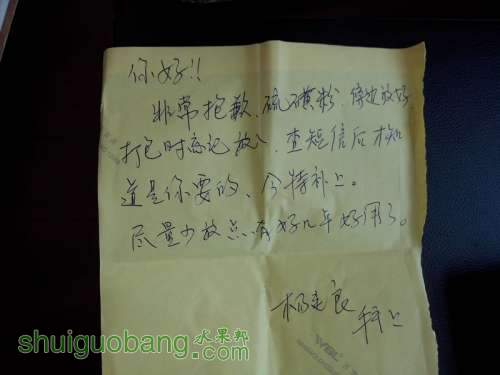 你好!!
非常抱歉、硫磺粉、旁边放好
打包时忘记放入、查短信后才知
道是你要的、今特补上。
尽量少放点、有好几年好用了。
杨 良
上
水果邦
shuiguobang.com